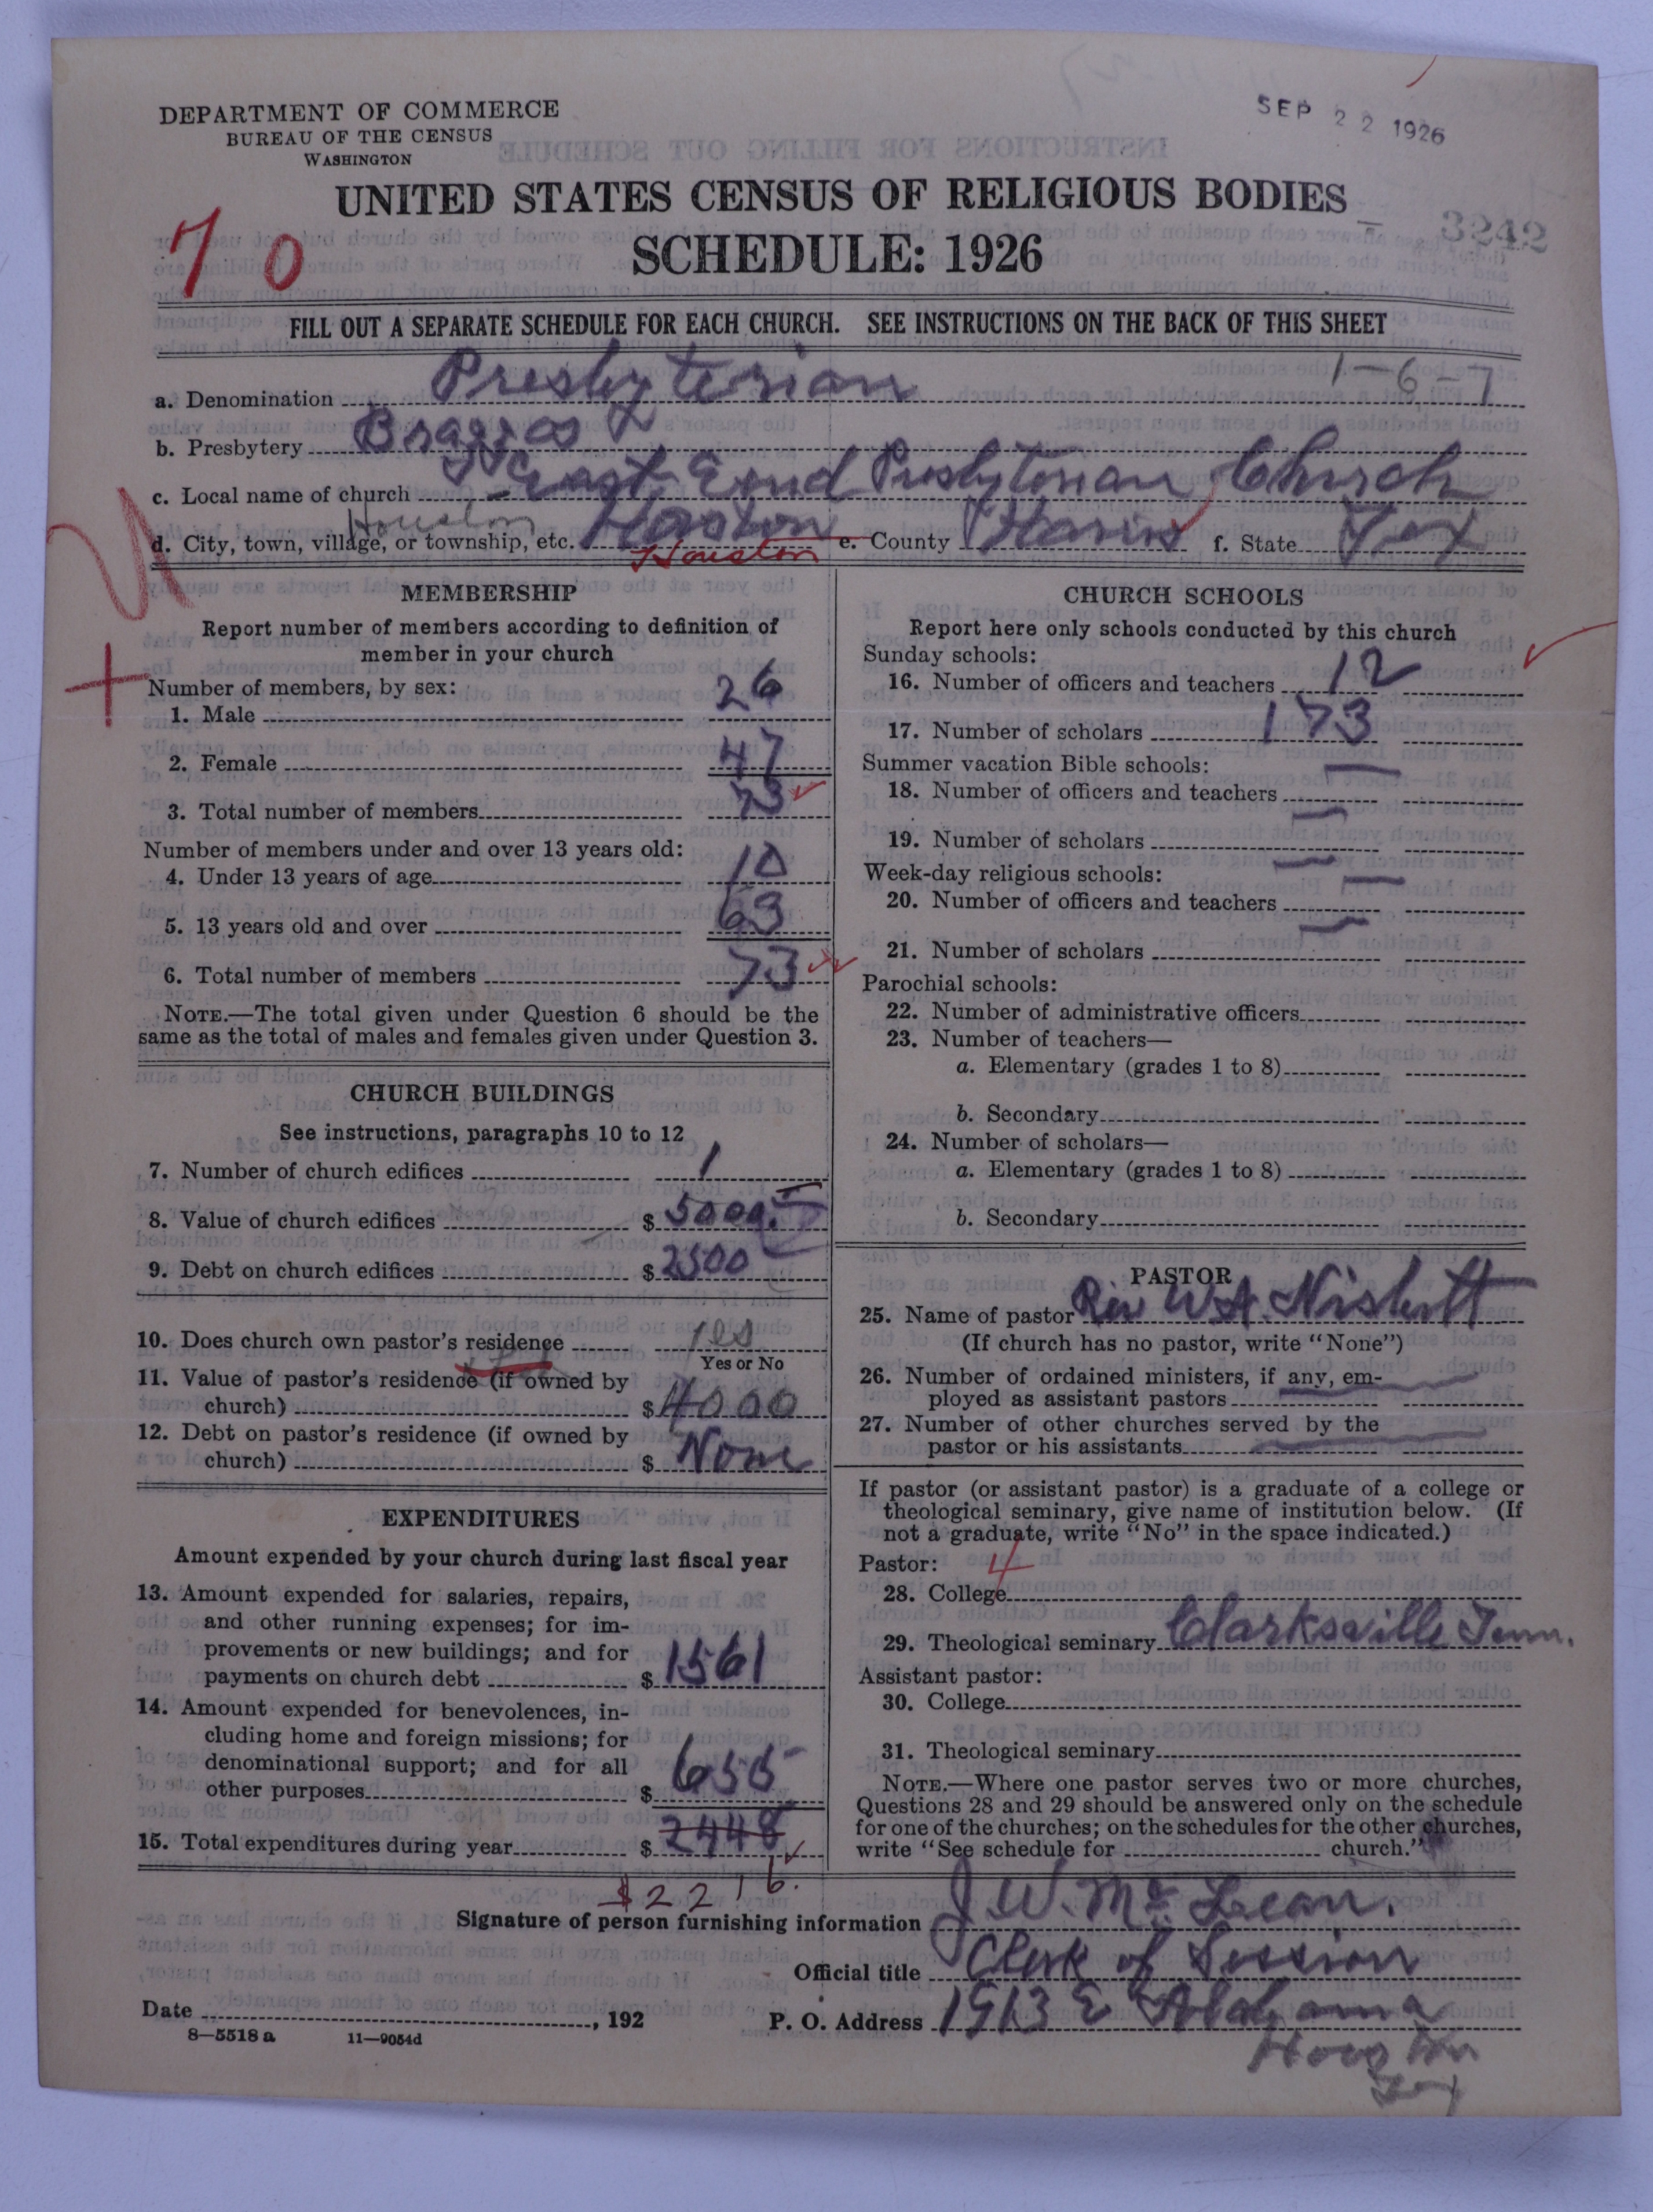 DEPARTMENT OF COMMERCE
BUREAU OF THE CENSUS
WASHINGTON
SEP 22 1926
UNITED STATES CENSUS OF RELIGIOUS BODIES
3242
70
SCHEDULE: 1926
FILL OUT A SEPARATE SCHEDULE FOR EACH CHURCH. SEE INSTRUCTIONS ON THE BACK OF THIS SHEET
1-6-7
a. Denomination Presbyterian
b. Presbytery Brazos
c. Local name of church East End Presbyterian Church
Houston
d. City, town, village, or township, etc. Hoston e. County Harris f. State Tex
Houston
MEMBERSHIP
Report number of members according to definition of
member in your church
Number of members, by sex:
1. Male 26
2. Female 47
3. Total number of members 73
Number of members under and over 13 years old:
4. Under 13 years of age 10
5. 13 years old and over 63
6. Total number of members 73
NOTE.—The total given under Question 6 should be the
same as the total of males and females given under Question 3.
CHURCH BUILDINGS
See instructions, paragraphs 10 to 12
7. Number of church edifices 1
8. Value of church edifices $ 5000
9. Debt on church edifices $ 2500
10. Does church own pastor's residence yes
Yes or No
11. Value of pastor's residence (if owned by
church) $ 4000
12. Debt on pastor's residence (if owned by
church) $ None
EXPENDITURES
Amount expended by your church during last fiscal year
13. Amount expended for salaries, repairs,
and other running expenses; for im-
provements or new buildings; and for
payments on church debt $ 1561
14. Amount expended for benevolences, in-
cluding home and foreign missions; for
denominational support; and for all
other purposes $ 655
15. Total expenditures during year $ 2448
$2216.
CHURCH SCHOOLS
Report here only schools conducted by this church
Sunday schools:
16. Number of officers and teachers 12
17. Number of scholars 173
Summer vacation Bible schools:
18. Number of officers and teachers —
19. Number of scholars —
Week-day religious schools:
20. Number of officers and teachers —
21. Number of scholars —
Parochial schools:
22. Number of administrative officers
23. Number of teachers—
a. Elementary (grades 1 to 8)
b. Secondary
24. Number of scholars—
a. Elementary (grades 1 to 8)
b. Secondary
PASTOR
25. Name of pastor Rev W.A. Nisbett
(If church has no pastor, write "None")
26. Number of ordained ministers, if any, em-
ployed as assistant pastors —
27. Number of other churches served by the
pastor or his assistants —
If pastor (or assistant pastor) is a graduate of a college or
theological seminary, give name of institution below. (If
not a graduate, write "No" in the space indicated.)
Pastor: 4
28. College
29. Theological seminary Clarksville Tenn.
Assistant pastor:
30. College
31. Theological seminary
NOTE.—Where one pastor serves two or more churches,
Questions 28 and 29 should be answered only on the schedule
for one of the churches; on the schedules for the other churches,
write "See schedule for church."
Signature of person furnishing information J. W. McLean.
Official title Clerk of Session
Date , 192
P. O. Address 1913 E Alabama
Houston
Tex
8—5518 a 11—9054d